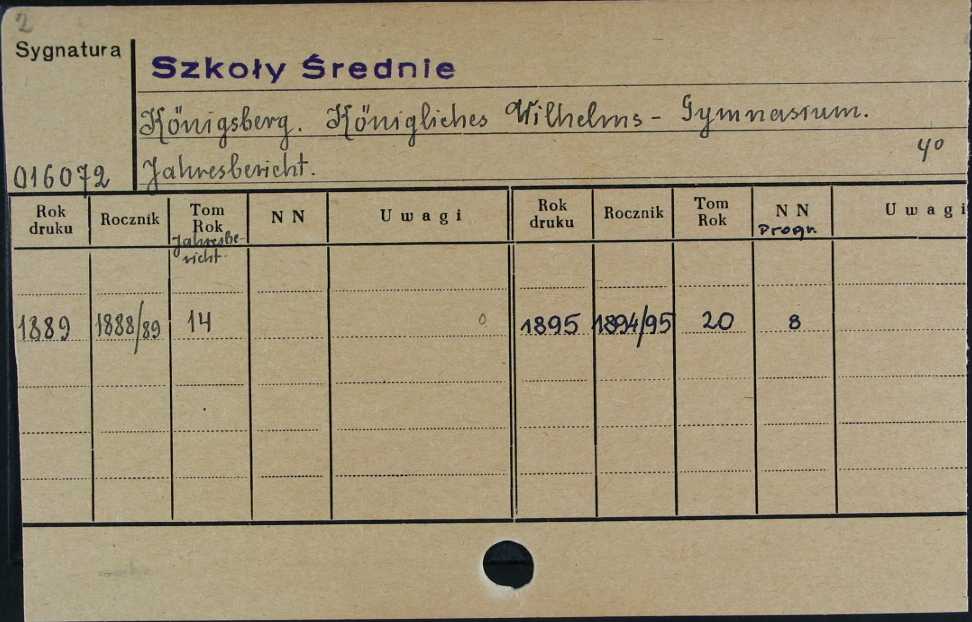 2
Sygnatura
Szkoły Średnie
Königsberg. Königliches Wilhelms-Gymnasium.
4°
016072
Jahresbericht.
Rok druku Rocznik Tom Rok Jahresbericht NN Uwagi Rok druku Rocznik Tom Rok NN Progr. Uwagi
1889 1888/89 14 0 1895 1894/95 20 8